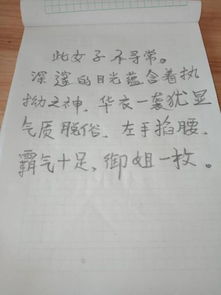 此女子不寻常。
深邃的目光蕴含着执
拗之神，华衣一袭犹显
气质脱俗，左手掐腰，
霸气十足，御姐一枚。